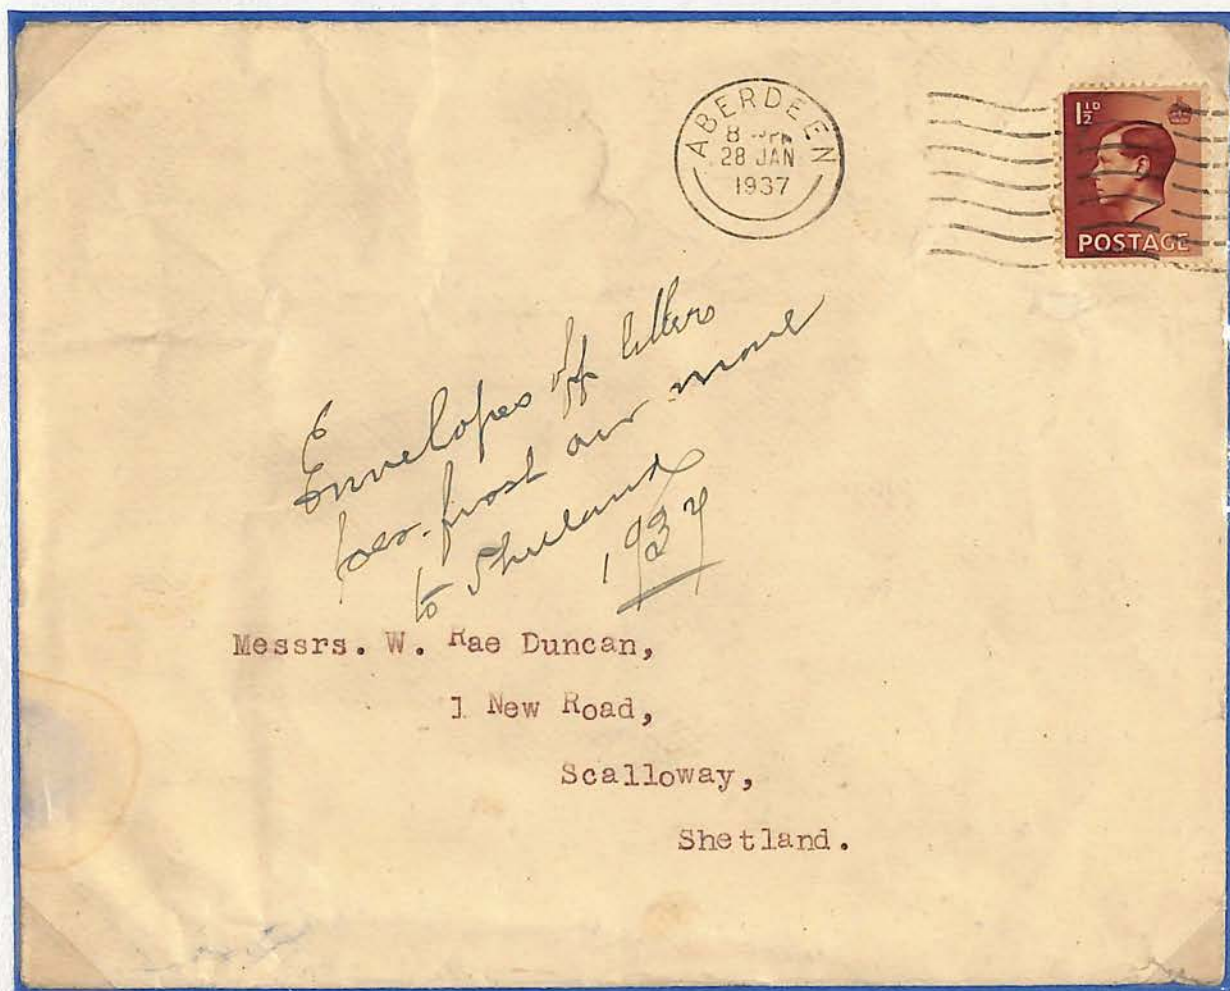 ABERDEEN
8
28 JAN
1937
1½D
POSTAGE
Envelopes off letters
our move
to
1937
Messrs. W. Rae Duncan,
1 New Road,
Scalloway,
Shetland.